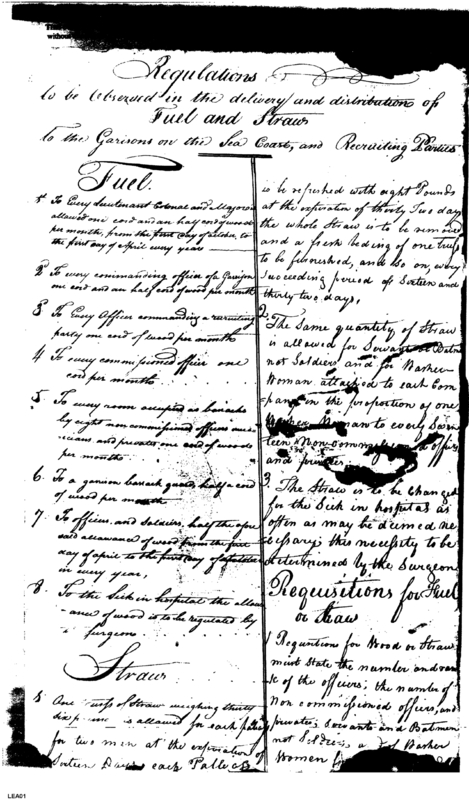 Regulations
to be Observed in the delivery and distribution of
Fuel and Straw
to the Garisons on the Sea Coast, and Recruiting Parties
Fuel.
1 To Every Lieutenant Colonel and Major is
allowed one cord and an half cord of wood
per month, from the first day of october, to
the first day of april every year
2 To every commanding officer of a Garison
one cord and an half cord of wood per month
3 To Every Officer commanding a recruiting
party one cord of wood per month
4 To every commissioned officer one
cord per month
5 To every room occupied as barracks
by eight non commissioned officers
and privates one cord of wood
per month
6. To a garison barrack guard, half a cord
of wood per month
7. To officers, and Soldiers, half the afore
said allowance of wood from the first
day of april to the first day of october
in every year,
8. To the Sick in hospital the allow
ance of wood is to be regulated by
Surgeon
Straw
1 One Truss of Straw weighing thirty
six is allowed for each
for two men at the expiration of
Sixteen Days each
to be refreshed with eight Pounds
at the expiration of thirty Two days
the whole Straw is to be removed
and a fresh beding of one truss
to be furnished, and so on, every
Succeeding period of Sixteen and
thirty two days,
2. The Same quantity of Straw
is allowed for Servants or Batmen
not Soldiers and for Washer
Woman attached to each Com
pany in the proportion of one
Woman to every Seven
teen Non commissioned officers
and privates
3. The Straw is to be Changed
for the Sick in hospital as
often as may be deemed ne
cessary this necessity to be
determined by the Surgeon
Requisitions for Fuel
or Straw
1 Requisition for Wood or Straw
must State the number and ran
k of the officers; the number of
Non commissioned officers, and
privates, Servants and Batmen
not Soldiers, Washer
Women
LEA01